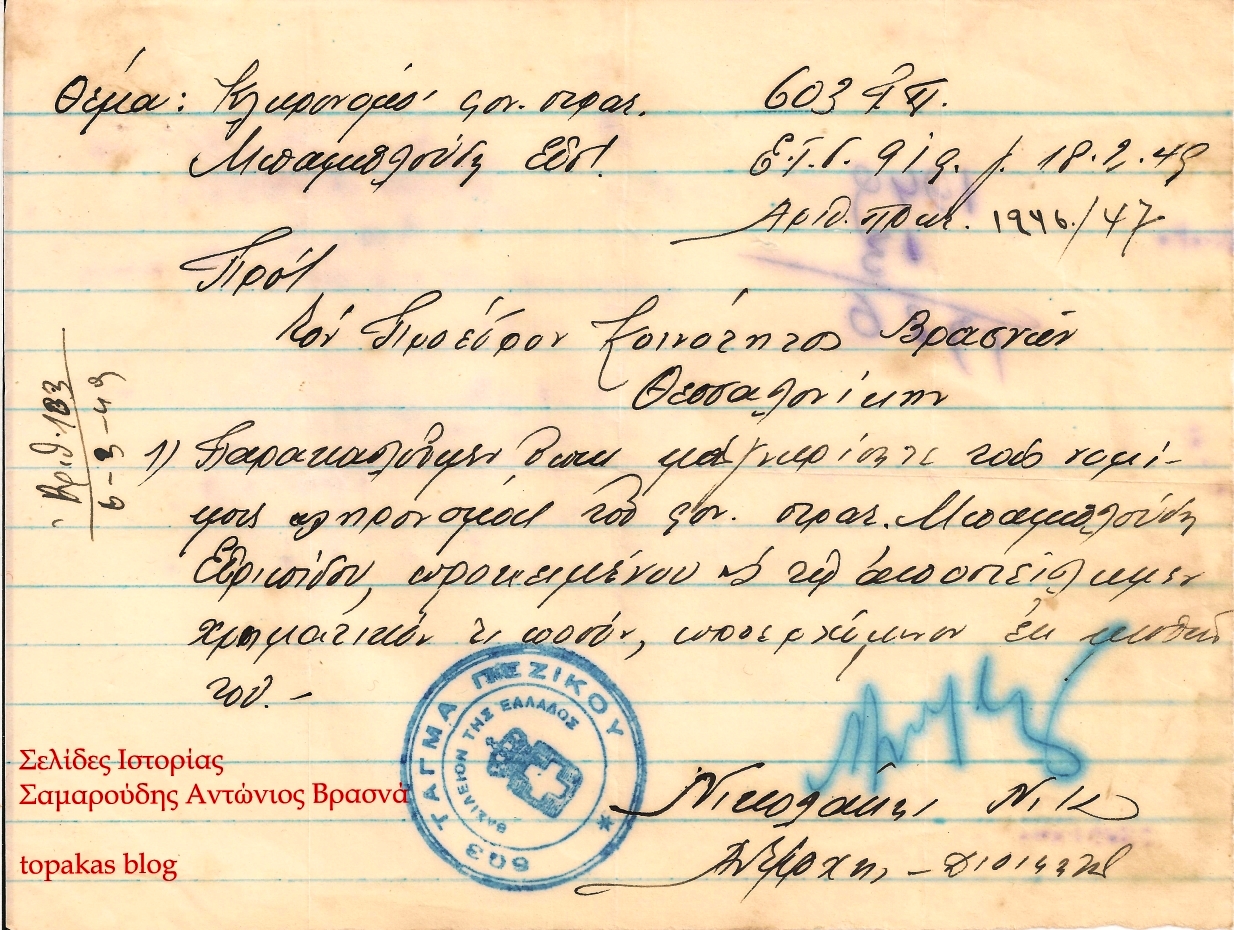 Θέμα: Κληρονόμοι φον. στρατ.
Μπαμπλούδη Εὐρ.
603 Τ.Π.
Ε.Τ.Γ. 919. 18.2.49
Ἀριθ. Πρωτ. 1946/47
Πρός
Τόν Πρόεδρον Κοινότητος Βρασνῶν
Θεσσαλονίκην
Ἀριθ. 183
6-3-49
1) Παρακαλοῦμεν ὅπως μᾶς γνωρίσητε τούς νομί-
μους κληρονόμους τοῦ φον. στρατ. Μπαμπλούδη
Εὐριπίδου, προκειμένου νά τοῖς ἀποστείλωμεν
χρηματικόν τι ποσόν, προερχόμενον ἐκ μισθοῦ
του.-
603 ΤΑΓΜΑ ΠΕΖΙΚΟΥ
ΒΑΣΙΛΕΙΟΝ ΤΗΣ ΕΛΛΑΔΟΣ
Νικολάκης Νικ
Ταγ/ρχης - Διοικητής
Σελίδες Ιστορίας
Σαμαρούδης Αντώνιος Βρασνά
topakas blog